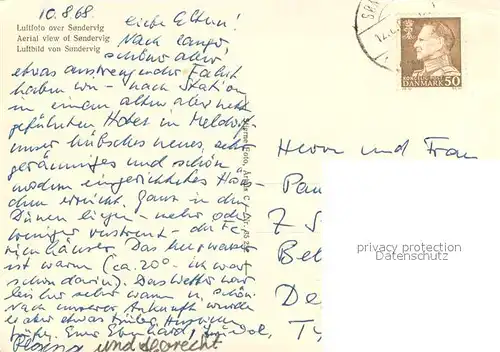 10.8.68.
Luftfoto over Søndervig
Aerial view of Søndervig
Luftbild von Søndervig
Liebe Eltern!
Nach langer,
schöner aber
etwas anstrengender Fahrt
haben wir - nach Station
in einem alten aber nett
geführten Hotel in Meldorf -
unser hübsches neues, sehr
geräumiges und schön
modern eingerichtetes Häus-
chen erreicht. Ganz in den
Dünen liegen - mehr oder
weniger verstreut - die Fe-
rienhäuser. Das Meerwasser
ist warm (ca. 20° - ich war
schon darin). Das Wetter war
bisher sehr warm u. schön.
Nach unserer Ankunft wurde
es aber etwas
Eberhard,
und Albrecht
Herrn und Frau
Pau
7 S
Bei
De
KONGELIG POST
DANMARK 50
privacy protection
Datenschutz